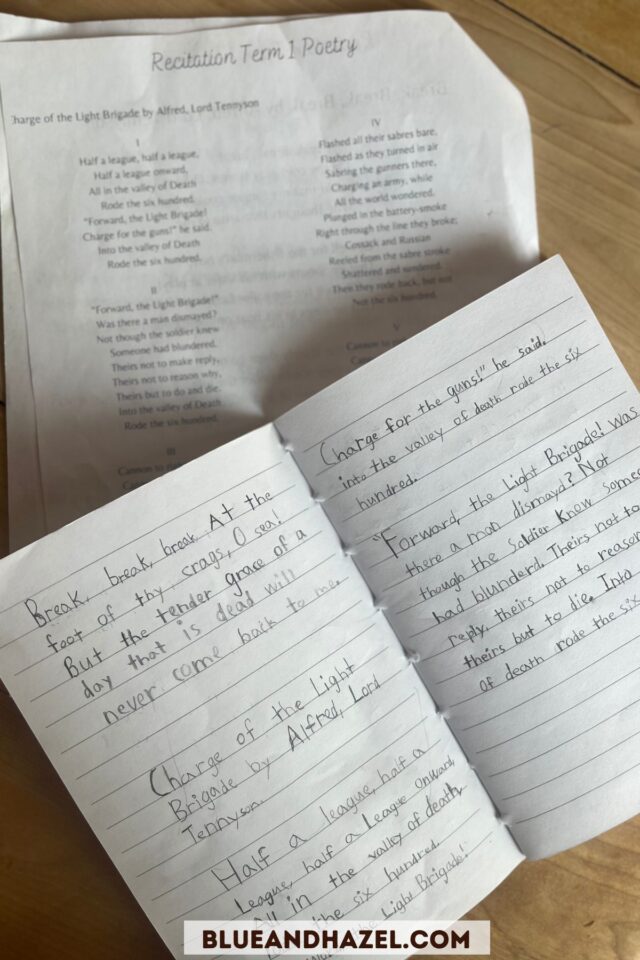 Recitation Term 1 Poetry
Charge of the Light Brigade by Alfred, Lord Tennyson
I
Half a league, half a league,
Half a league onward,
All in the valley of Death
Rode the six hundred.
"Forward, the Light Brigade!
Charge for the guns!" he said.
Into the valley of Death
Rode the six hundred.
II
"Forward, the Light Brigade!"
Was there a man dismayed?
Not though the soldier knew
Someone had blundered.
Theirs not to make reply,
Theirs not to reason why,
Theirs but to do and die.
Into the valley of Death
Rode the six hundred.
III
Cannon to
IV
Flashed all their sabres bare,
Flashed as they turned in air
Sabring the gunners there,
Charging an army, while
All the world wondered.
Plunged in the battery-smoke
Right through the line they broke;
Cossack and Russian
Reeled from the sabre stroke
Shattered and sundered.
Then they rode back, but not
Not the six hundred.
V
Cannon to
Break, break, break, At the
foot of thy crags, O sea!
But the tender grace of a
day that is dead will
never come back to me.
Charge of the Light
Brigade by Alfred, Lord
Tennyson.
Half a league, half a
league, half a League Onward,
All in the valley of death,
the six hundred.
the Light Brigade!
Charge for the guns!" he said.
into the valley of death rode the six
hundred.
"Forward, the Light Brigade! was
there a man dismayd? Not
though the Soldier Know Some
had blunderd. Theirs not to
reply, theirs not to reason
theirs but to die. Into
of death rode the six
BLUEANDHAZEL.COM